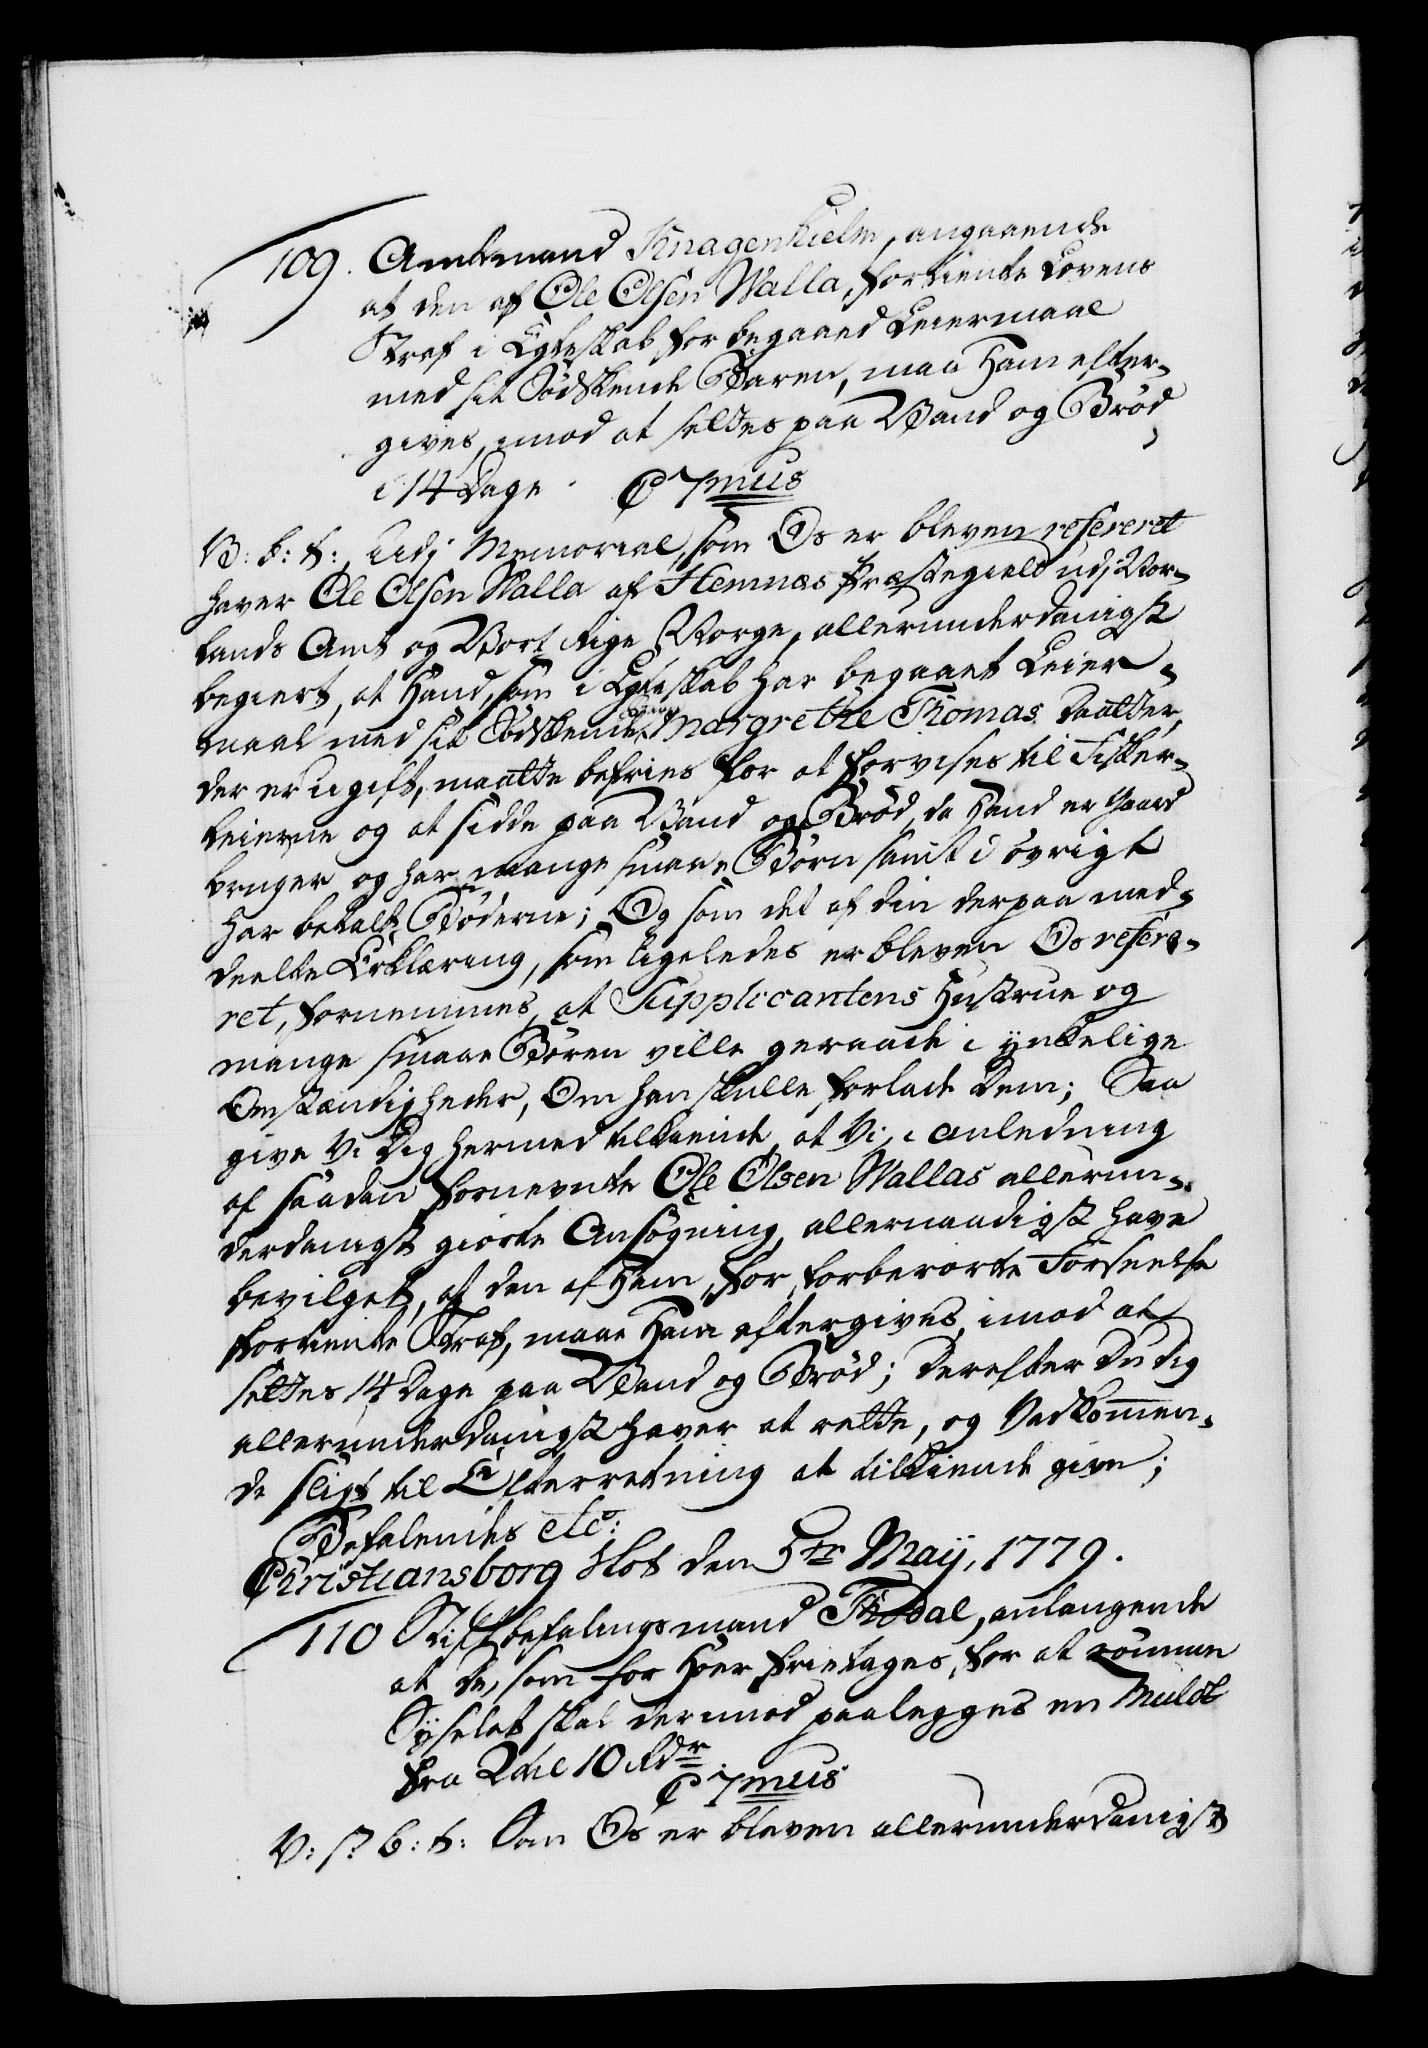 109. Amtmand Knagenhielm, angaaende
at den af Ole Olsen Walla, fortiente Lovens
Straf i Egteskab for begaaed Leiermaal
med sit Södskende Baren, maa Ham efter-
gives, imod at settes paa Vand og Bröd
i 14 Dage. C 7mus
V: b: t:, Udj Memorial, som Os er bleven refereret
haver Ole Olsen Walla af Hemnæs Præstegield udj Nor-
lands Amt og Vort Rige Norge, allerunderdanigst
begiert, at Hand, som i Egteskab har begaaet Leier-
maal med sit Södskende Barn Margrethe Thomas Daatter,
der er ugift, maatte befries for at forvises til Fisker-
leierne og at sidde paa Vand og Bröd, da Hand er Gaard
bruger og har mange smaae Börn samt i övrigt
har betalt Böderne; Og som det af din derpaa med-
deelte Erklæring, som ligeledes er bleven Os refere-
ret, fornemmes, at Supplicantens Hustrue og
mange smaae Bören ville geraade i ynkelige
Omstændigheder, Om han skulle forlade Dem; Saa
give Vi Dig hermed tilkiende, at Vi, i Anledning
af saadan fornevnte Ole Olsen Wallas allerun-
derdanigst giorte Ansögning, allernaadigst have
bevilget, at den af Ham, for forberörte Forseelse
fortiente Straf, maae Ham eftergives, imod at
settes 14 Dage paa Vand og Bröd; Derefter Du dig
allerunderdanigst haver at rette, og Vedkommen-
de sligt til Efterretning at tilkiende give;
Befalendes etc:
Christiansborg Slot den 5te Maij, 1779.
110 Stiftbefalingsmand Thodal, anlangende
at de, som for Hoer frietages, for at römme
Sysselet skal derimod paalegges en Mulct
fra 2 til 10 Rdr C 7mus
V: s: b: t: Som Os er bleven allerunderdanigst